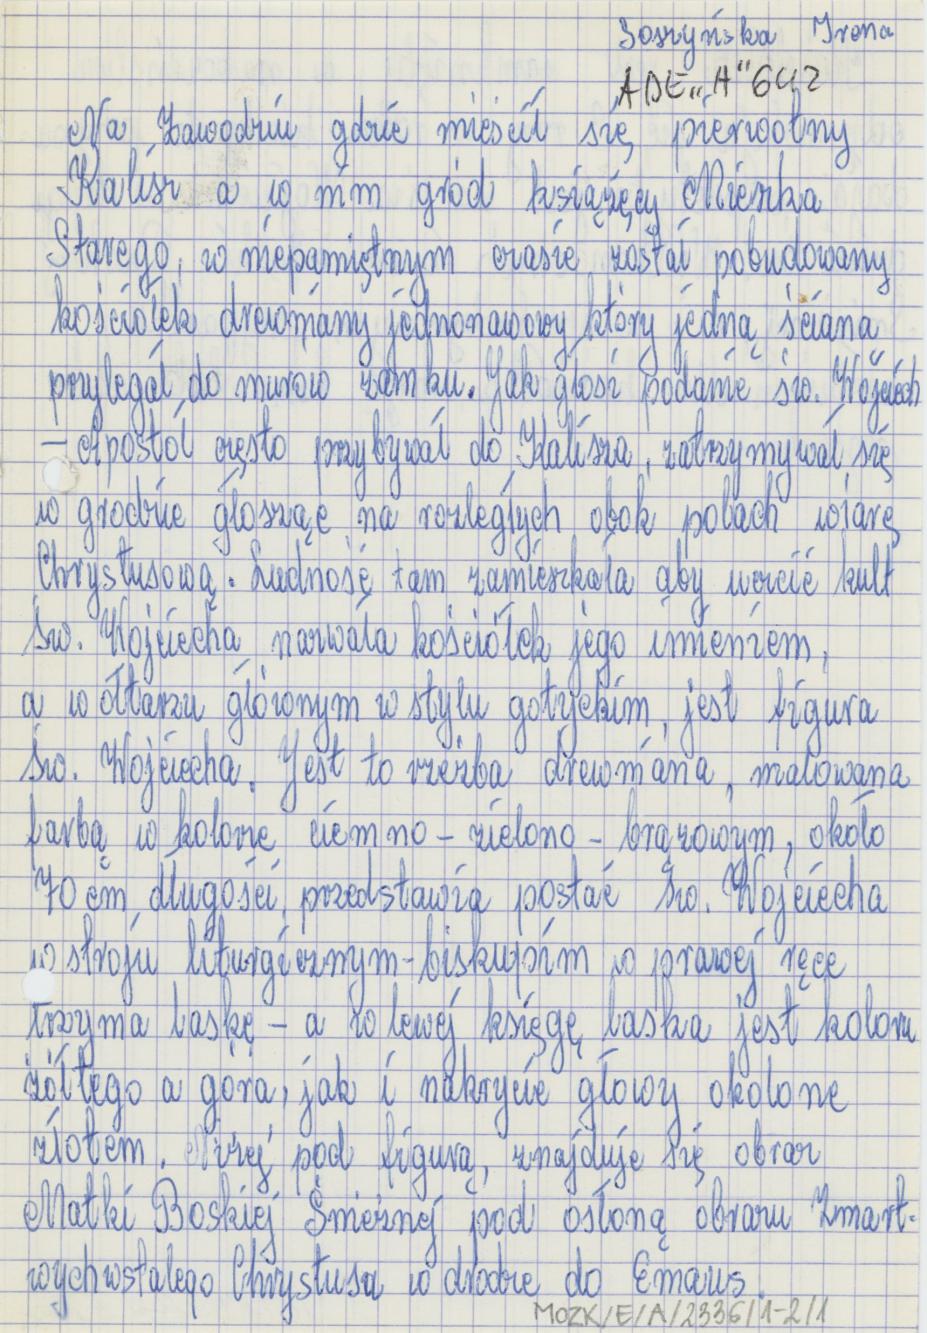 Soszyńska Irena
ADE „A" 642
Na Zawodziu gdzie mieścił się pierwotny
Kalisz a w nim gród książęcy Mieszka
Starego, w niepamiętnym czasie został pobudowany
kościółek drewniany jednonawowy który jedną ścianą
przylegał do murów zamku. Jak głosi podanie św. Wojciech
– Apostół często przybywał do Kalisza, zatrzymywał się
w grodzie głosząc na rozległych obok polach wiarę
Chrystusową. Ludność tam zamieszkała aby uczcić kult
św. Wojciecha nazwała kościółek jego imieniem,
a w ołtarzu głównym w stylu gotyckim, jest figura
św. Wojciecha. Jest to rzeźba drewniana, malowana
farbą w kolorze ciemno – zielono – brązowym, około
70 cm długości, przedstawia postać św. Wojciecha
w stroju liturgicznym – biskupim w prawej ręce
trzyma laskę – a w lewej księgę laska jest koloru
żółtego a góra, jak i nakrycie głowy okolone
złotem. Niżej pod figurą, znajduje się obraz
Matki Boskiej Śnieżnej pod osłoną obrazu Zmart-
wychwstałego Chrystusa w drodze do Emaus.
MOZK/E/A/2336/1-2/1